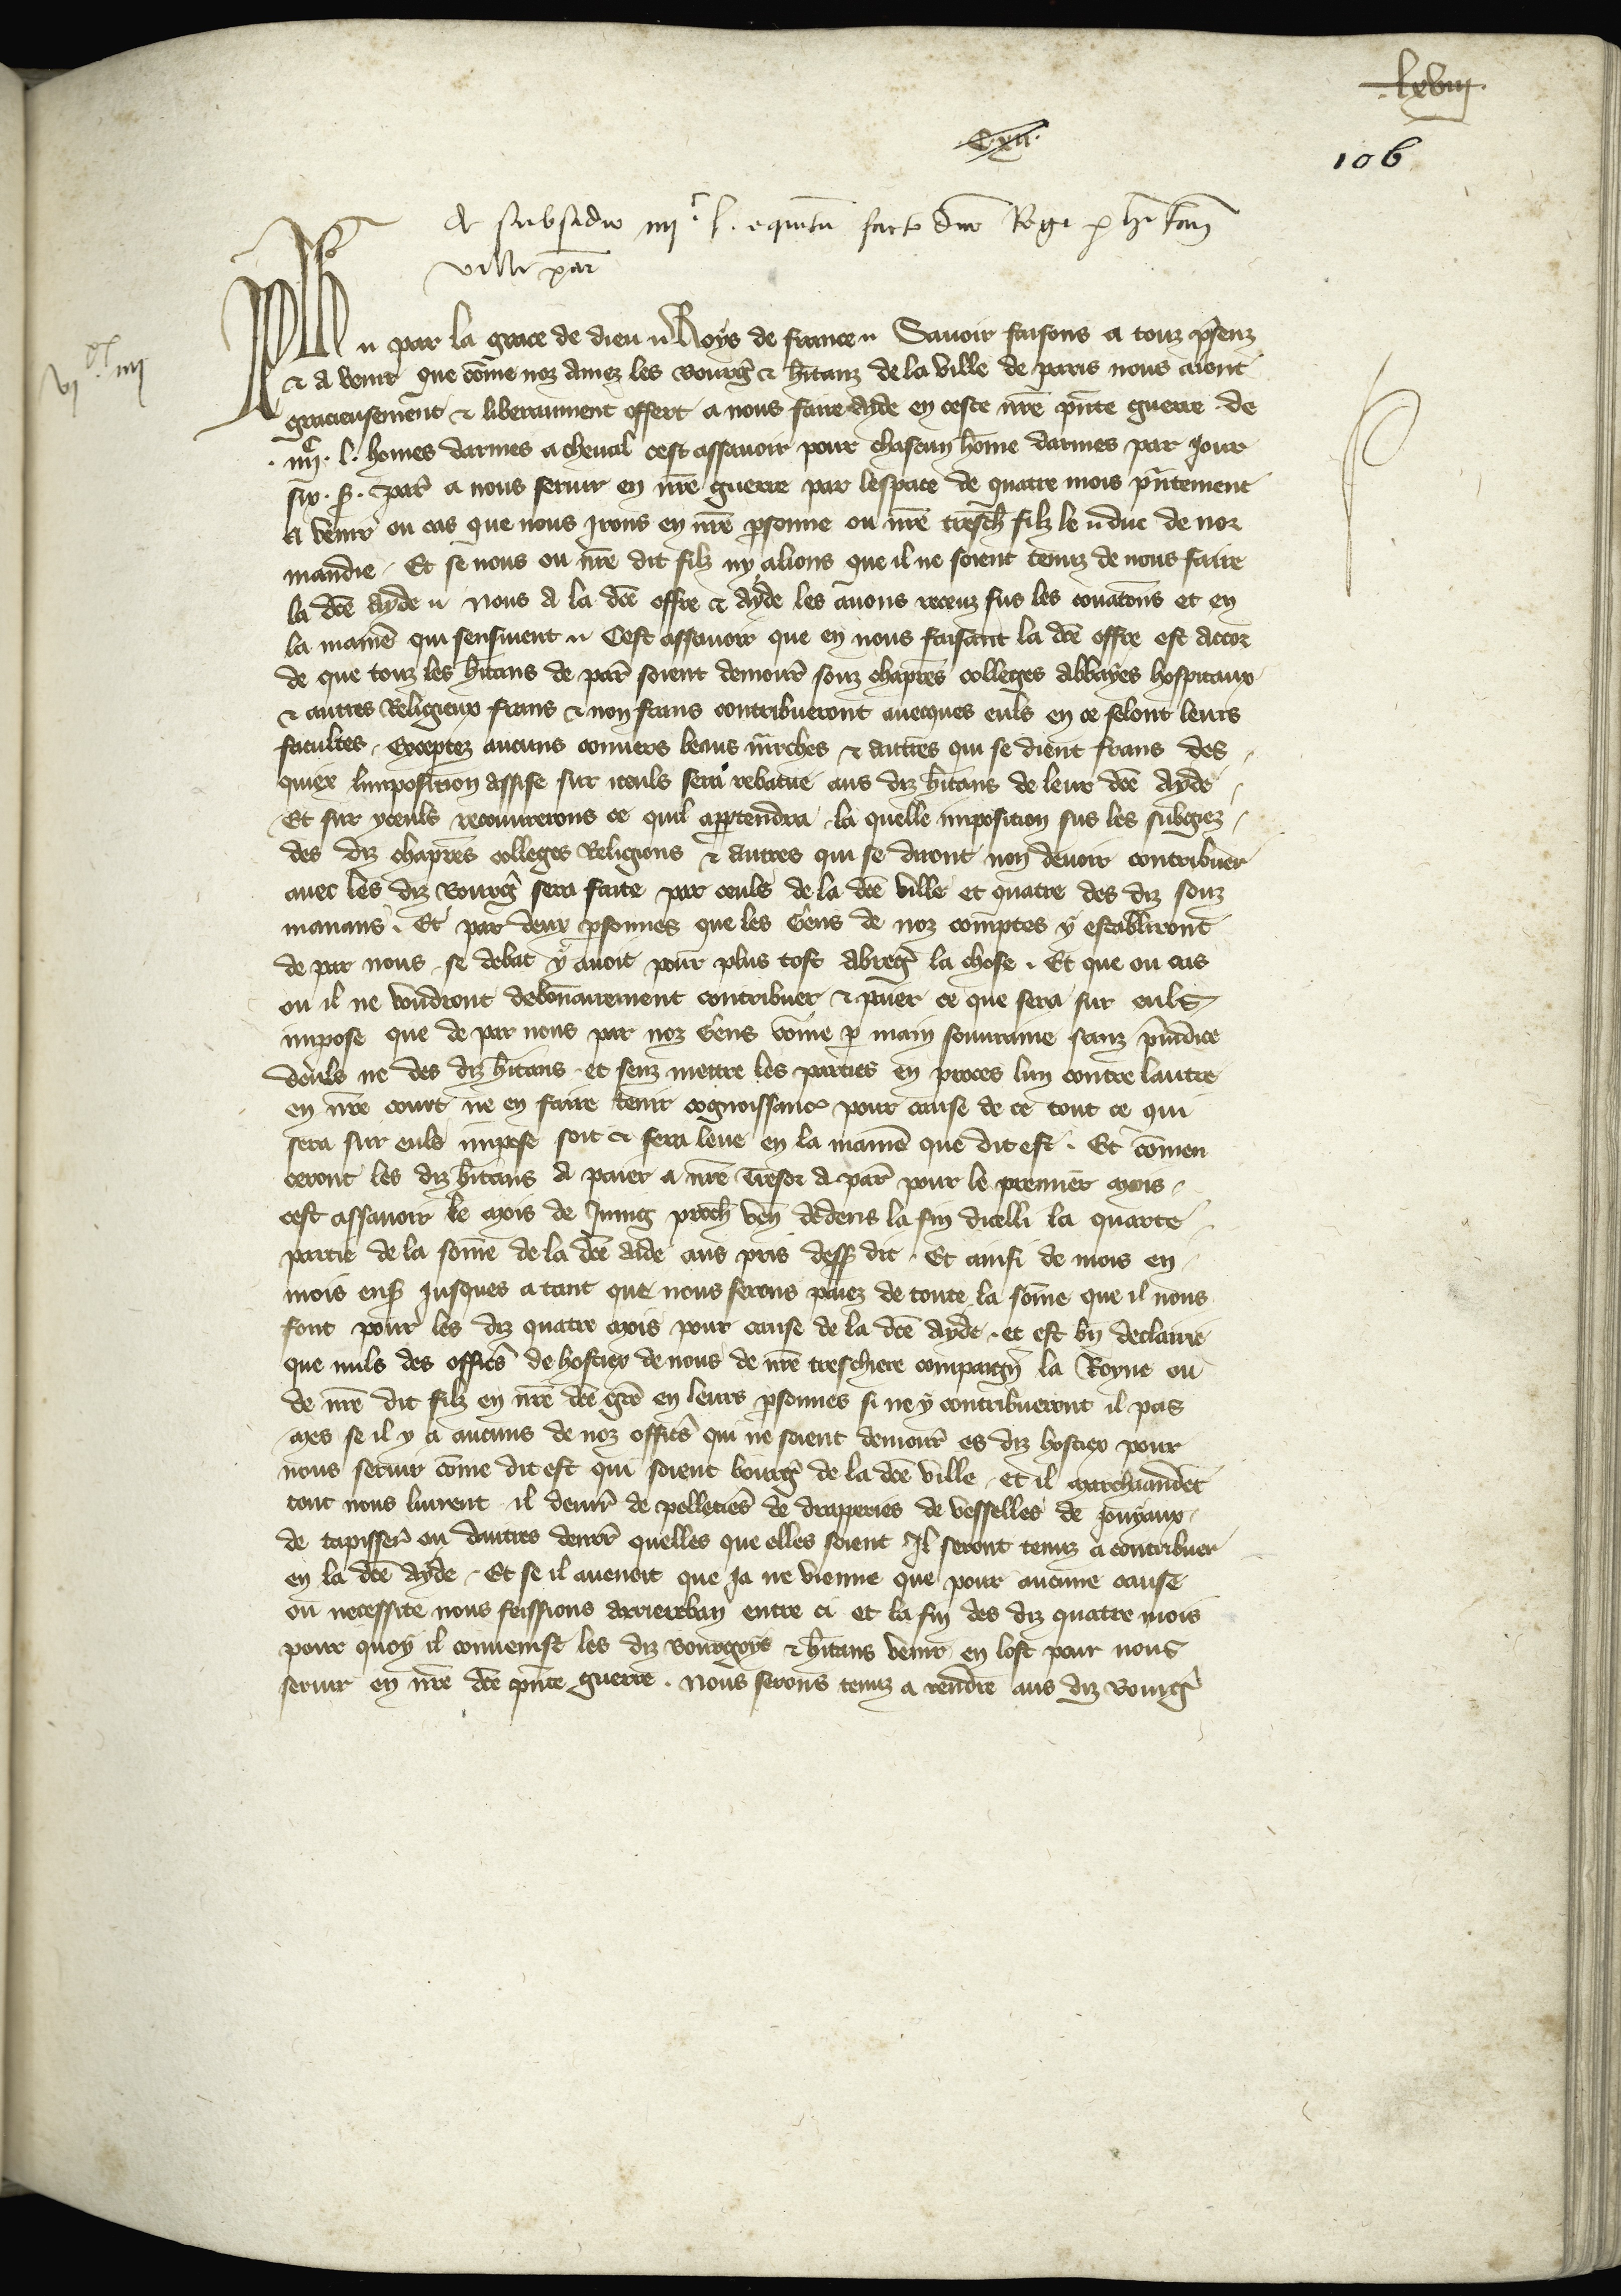 lxviii
C.xii.
106
De subsidio iiiic l. equitũ facto dño Regi p hitañ
ville par̃
vixx iiii
Ph̃ par la grace de dieu Roys de france Sauoir faisons a touz p̃senz
& a venir que cõme noz amez les bourg̃ & hitanz de la ville de paris nous aient
gracieusement & liberaument offert a nous faire ayde en ceste nr̃e pñte guerre de
.iiiic. l. homes darmes a cheual cest assauoir pour chascun hõme darmes par jour
six .s. par̃ a nous seruir en nr̃e guerre par lespace de quatre mois pñtement
a venir ou cas que nous jrons en nr̃e p̃sonne ou nr̃e tresch̃ filz le duc de nor
mandie Et se nous ou nr̃e dit filz ny alions que il ne soient tenuz de nous faire
la dc̃e ayde Nous a la dc̃e offre & ayde les auons receuz sus les condic̃ons et en
la manr̃e qui sensiuent Cest assauoir que en nous faisant la dc̃e offre est accor
de que touz les hitans de par̃ soient demour̃ souz chapr̃es colleges abbayes hospitaux
& autres Religieux frans & non frans contribueront auecques euls en ce selont leurs
facultes Exceptez aucuns conuers beaus & autres qui se dient frans des
quiex limposition assise sur iceuls sera rebatue aus diz hitans de leur dc̃e ayde
Et sur yceuls recouurerons ce quil appartendra la quelle imposition sus les subgiez
des diz chapr̃es colleges Religions & autres qui se diront non deuoir contribuer
auec les diz bourg̃ sera faite par ceuls de la dc̃e ville et quatre des diz souz
manans Et par deux p̃sonnes que les Gens de noz comptes y establiront
de par nous se debat y auoit pour plus tost abreg̃ la chose Et que ou cas
ou il ne voudront debonnairement contribuer & paier ce que sera sur euls
impose que de par nous par noz Gens cõme p main souuraine sanz p̃iudice
deuls ne des diz hitans et senz mettre les parties en proces lun contre lautre
en nr̃e court ne en faire tenir cognoissance pour cause de ce tout ce qui
sera sur euls impose soit & sera leue en la manr̃e que dit est Et cõmen
ceront les diz hitans a paier a nr̃e tresor a par̃ pour le premier mois
cest assauoir le mois de Juing proch̃ veñ dedens la fin dicelli la quarte
partie de la sõme de la dc̃e aide aus pris dess̃ dit Et ainsi de mois en
mois ens̃ jusques a tant que nous serons paiez de toute la sõme que il nous
font pour les diz quatre mois pour cause de la dc̃e ayde et est bñ declairie
que nuls des offic̃s de hostiex de nous de nr̃e treschiere compaigñ la Royne ou
de nr̃e dit filz en nr̃e dc̃e grẽ en leurs p̃sonnes si ne y contribueront il pas
mes se il y a aucuns de noz offic̃s qui ne soient demour̃ es diz hostiex pour
nous seruir cõme dit est qui soient bourg̃ de la dc̃e ville et il marchandẽt
tout nous liurent il denr̃ de pelletiẽs de draperies de vesselles de jouyaux
de tapisser̃ ou dautres denr̃ quelles que elles soient Il seront tenuz a contribuer
en la dc̃e ayde Et se il auenoit que ja ne vienne que pour aucune cause
ou necessite nous feissions arriereban entre ci et la fin des diz quatre mois
pour quoy il conuenist les diz bourgoys & hitans venir en lost pour nous
seruir en nr̃e dc̃e pñte guerre Nous serons tenuz a rendre aus diz bourg̃